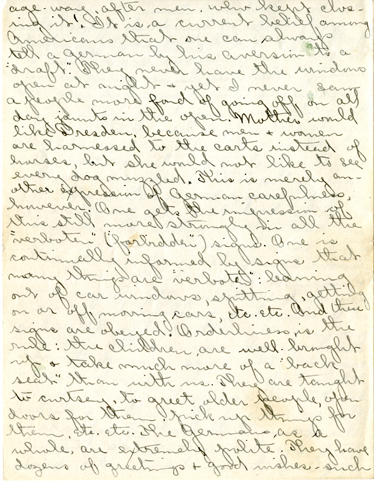 age-wave, after men who kept clos-
ing it! It is a current belief among
Americans that one can always
tell a German by his aversion to a
"draft". They never have the windows
open at night & yet I never saw
a people more fond of going off on all
day jaunts in the open. Mother would
like Dresden because men & women
are harnessed to the carts instead of
horses, but she would not like to see
every dog muzzled. This is merely an-
other expression of German carefulness,
however. One gets the impression of
this still more strongly in all the
"verboten" (forbidden) signs. One is
continually informed by signs that
many things are "verboten": leaning
out of car windows, spitting, getting
on or off moving cars, etc. etc. And these
signs are obeyed. Orderliness is the
rule: the children are well brought
up & take much more of a "back
seat" than with us. They are taught
to curtsey, to greet older people, open
doors for them, pick up things for
them, etc. etc. The Germans, as a
whole, are extremely polite. They have
dozens of greetings & good wishes - such